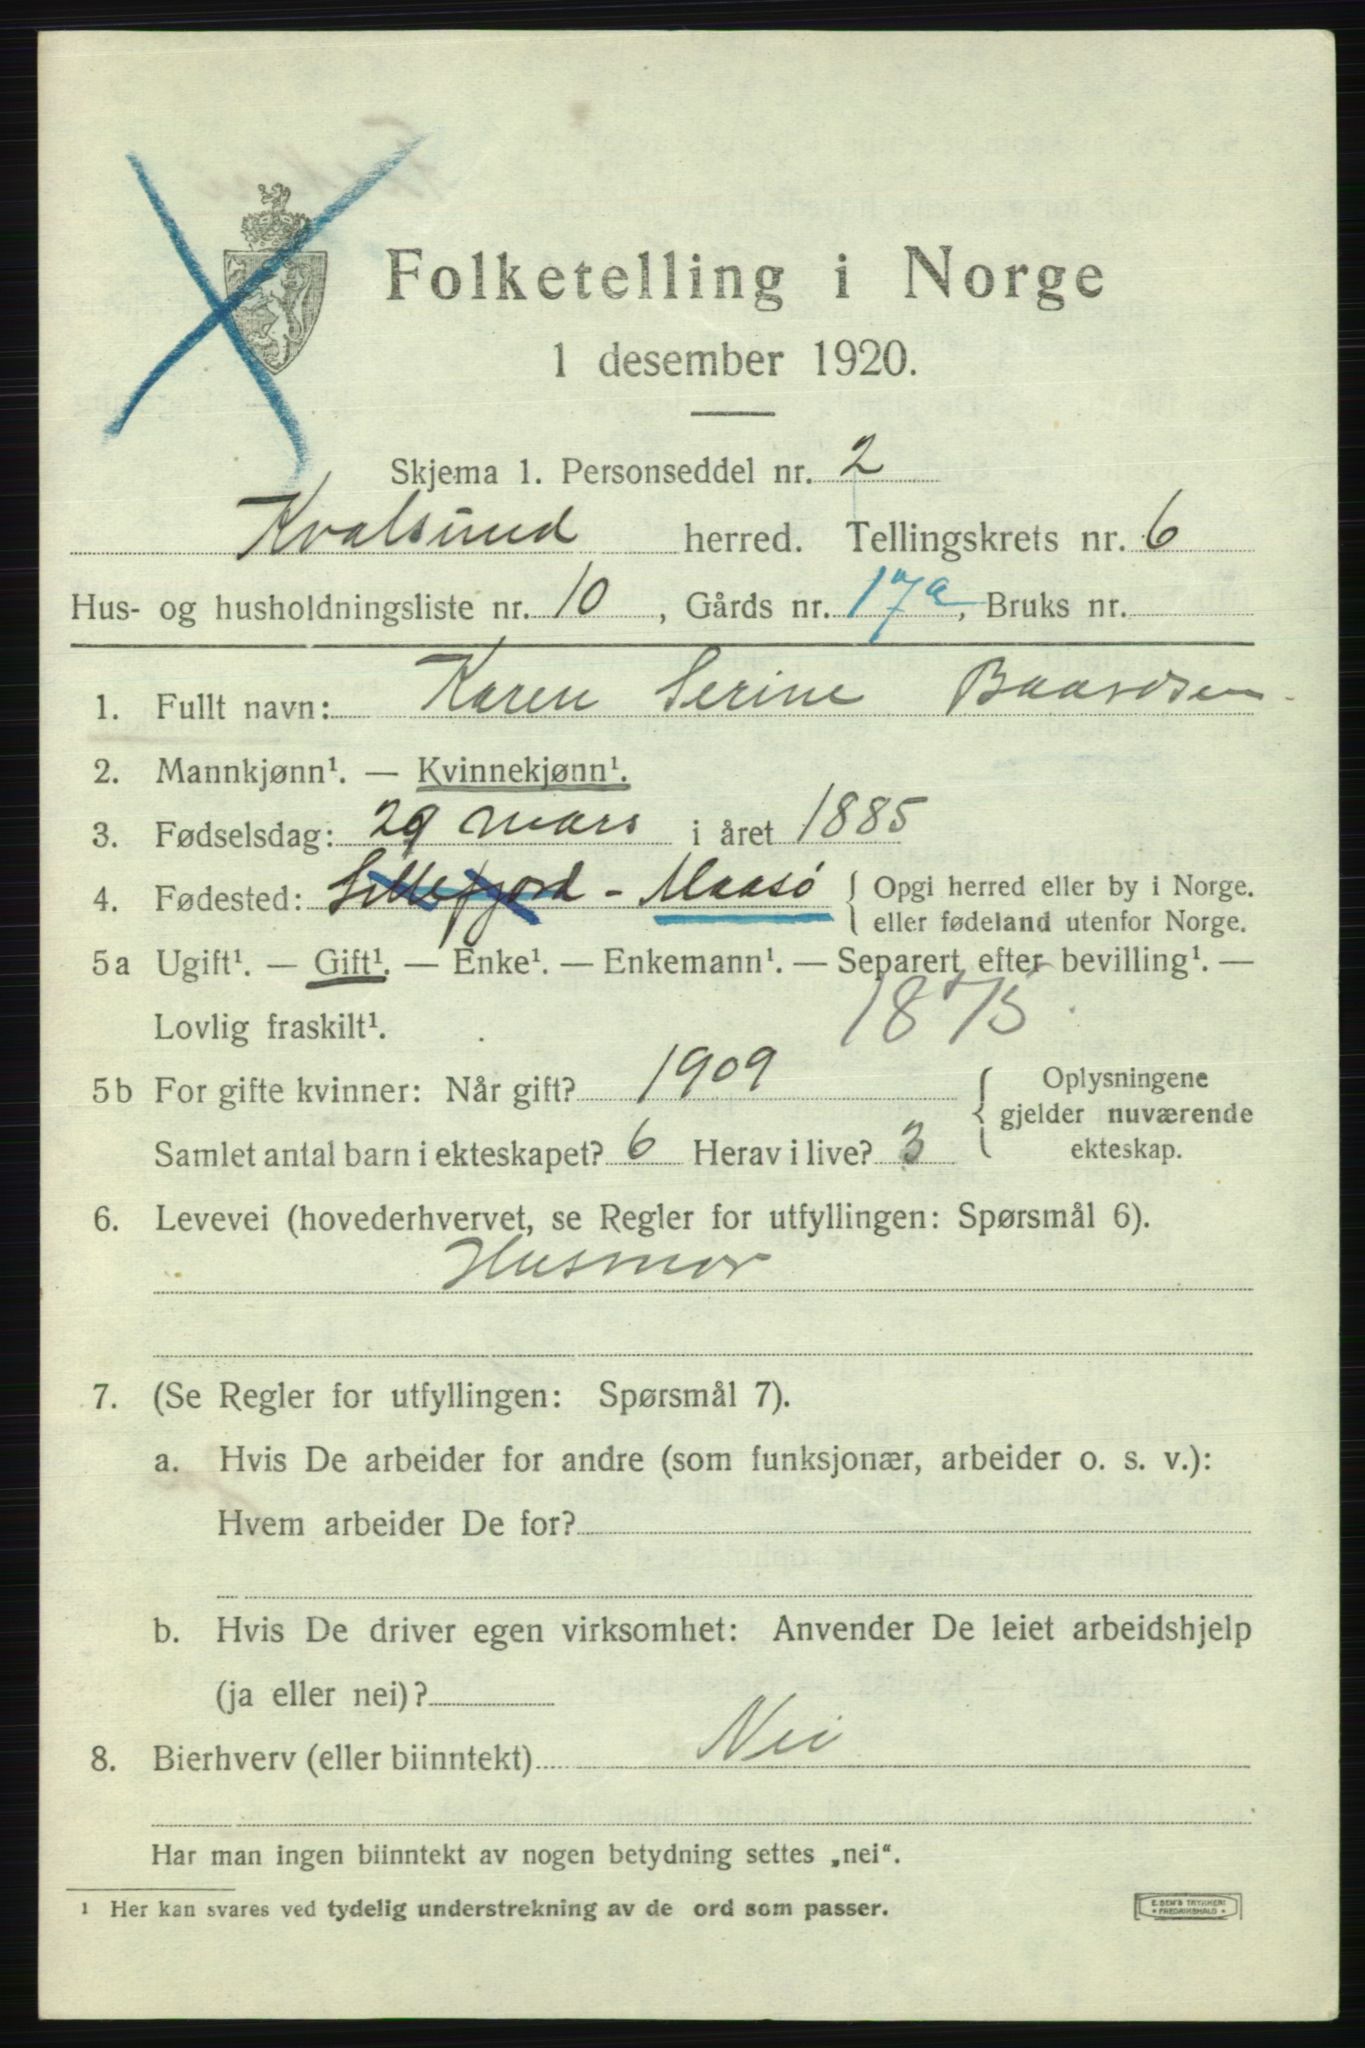 Folketelling i Norge
1 desember 1920.
Skjema 1. Personseddel nr. 2
Kvalsund herred. Tellingskrets nr. 6
Hus- og husholdningsliste nr. 10, Gårds nr. 17a, Bruks nr.
1. Fullt navn: Karen Serine
2. Mannkjønn¹. — Kvinnekjønn¹.
3. Fødselsdag: 29 mars i året 1885
4. Fødested: Lillefjord - Maasø { Opgi herred eller by i Norge.
eller fødeland utenfor Norge.
5a Ugift¹. — Gift¹. — Enke¹. — Enkemann¹. — Separert efter bevilling¹. —
Lovlig fraskilt¹. 1875
5b For gifte kvinner: Når gift? 1909 { Oplysningene
gjelder nuværende
Samlet antal barn i ekteskapet? 6 Herav i live? 3 ekteskap.
6. Levevei (hovederhvervet, se Regler for utfyllingen: Spørsmål 6).
Husmor
7. (Se Regler for utfyllingen: Spørsmål 7).
a. Hvis De arbeider for andre (som funksjonær, arbeider o. s. v.):
Hvem arbeider De for?
b. Hvis De driver egen virksomhet: Anvender De leiet arbeidshjelp
(ja eller nei)?
8. Bierhverv (eller biinntekt) Nei
Har man ingen biinntekt av nogen betydning settes „nei“.
¹ Her kan svares ved tydelig understrekning av de ord som passer.
E. SEM'S TRYKKERI
* FREDRIKSHALD *